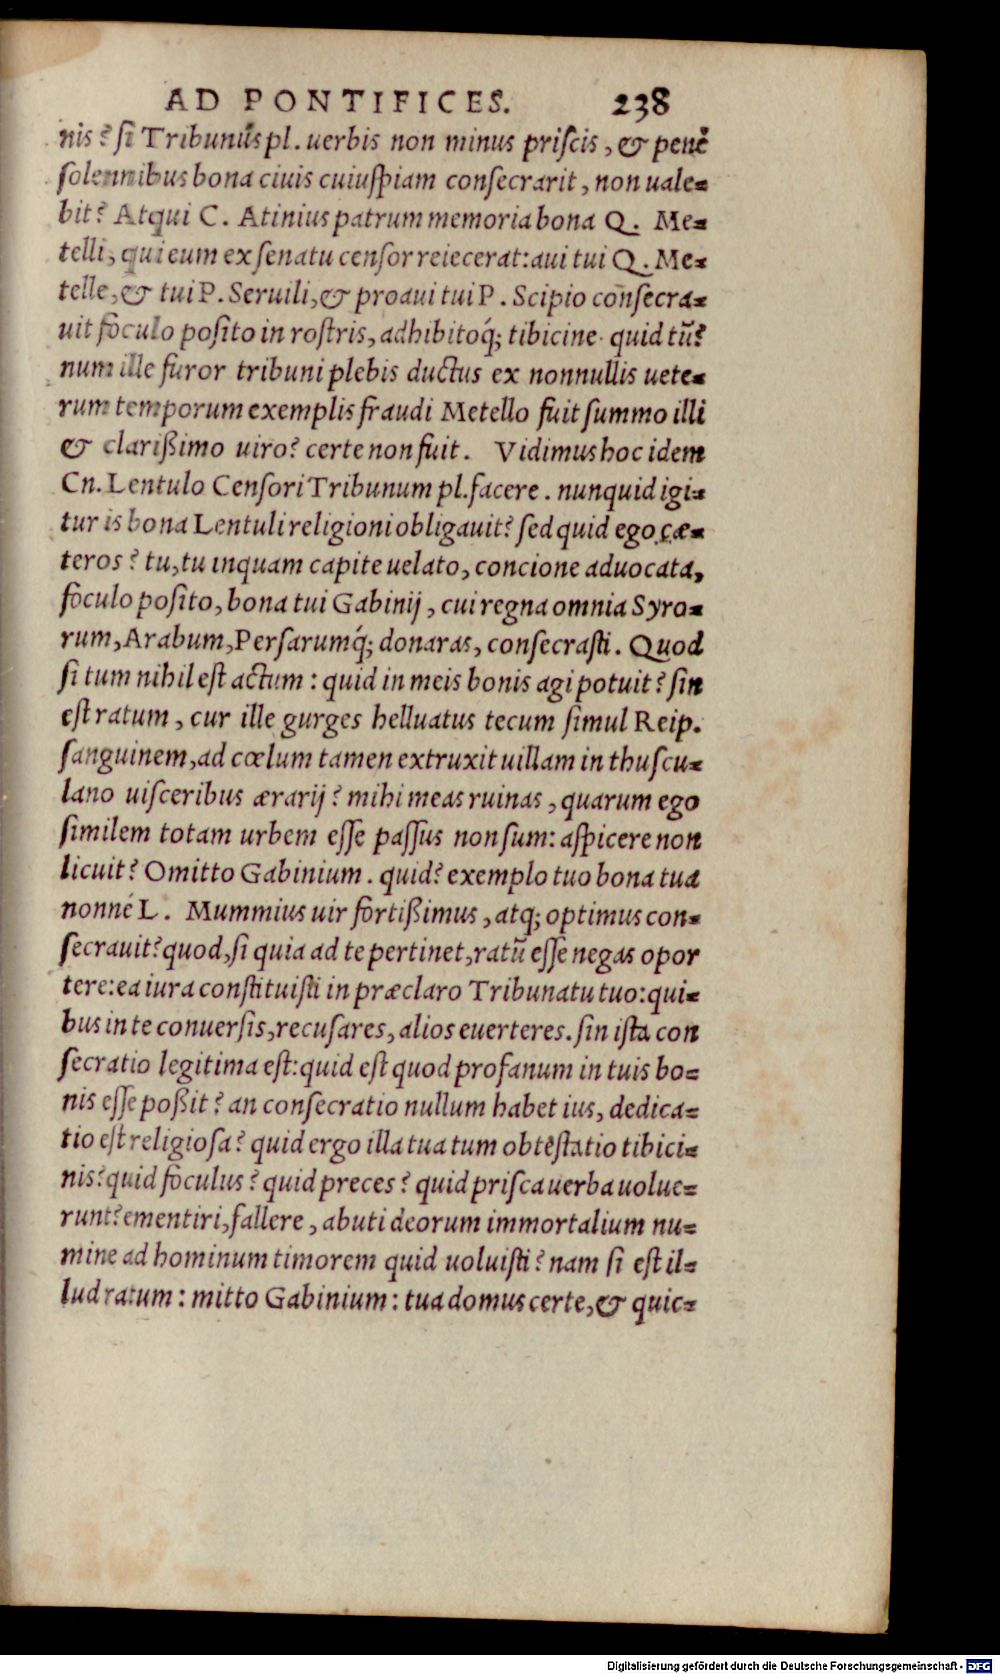 AD PONTIFICES. 238
nis? ſi Tribunus pl. uerbis non minus priſcis, & penè
ſolennibus bona ciuis cuiuſpiam conſecrarit, non uale=
bit? Atqui C. Atinius patrum memoria bona Q. Me=
telli, qui eum ex ſenatu cenſor reiecerat: aui tui Q. Me=
telle, & tui P. Seruili, & proaui tui P. Scipio conſecra=
uit foculo poſito in roſtris, adhibitoq́; tibicine. quid tũ?
num ille furor tribuni plebis ductus ex nonnullis uete=
rum temporum exemplis fraudi Metello fuit ſummo illi
& clarißimo uiro? certe non fuit. Vidimus hoc idem
Cn. Lentulo Cenſori Tribunum pl. facere. nunquid igi=
tur is bona Lentuli religioni obligauit? ſed quid ego cæ=
teros? tu, tu inquam capite uelato, concione aduocata,
foculo poſito, bona tui Gabinij, cui regna omnia Syro=
rum, Arabum, Perſarumq́; donaras, conſecraſti. Quod
ſi tum nihil eſt actum: quid in meis bonis agi potuit? ſin
eſt ratum, cur ille gurges helluatus tecum ſimul Reip.
ſanguinem, ad cœlum tamen extruxit uillam in thuſcu=
lano uiſceribus ærarij? mihi meas ruinas, quarum ego
ſimilem totam urbem eſſe paſſus non ſum: aſpicere non
licuit? Omitto Gabinium. quid? exemplo tuo bona tua
nonné L. Mummius uir fortißimus, atq; optimus con=
ſecrauit? quod, ſi quia ad te pertinet, ratũ eſſe negas opor
tere: ea iura conſtituiſti in præclaro Tribunatu tuo: qui=
bus in te conuerſis, recuſares, alios euerteres. ſin iſta con
ſecratio legitima eſt: quid eſt quod profanum in tuis bo=
nis eſſe poßit? an conſecratio nullum habet ius, dedica=
tio eſt religioſa? quid ergo illa tua tum obteſtatio tibici=
nis? quid foculus? quid preces? quid priſca uerba uolue=
runt? ementiri, fallere, abuti deorum immortalium nu=
mine ad hominum timorem quid uoluiſti? nam ſi eſt il=
lud ratum: mitto Gabinium: tua domus certe, & quic=
Digitalisierung gefördert durch die Deutsche Forschungsgemeinschaft - DFG